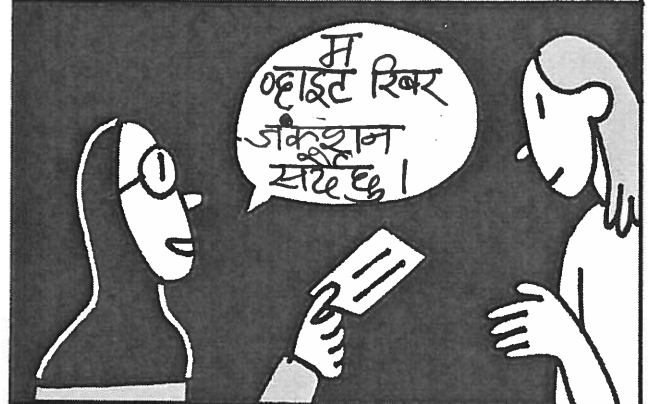 म
व्हाइट रिबर
जंकशन
सर्दैछु।